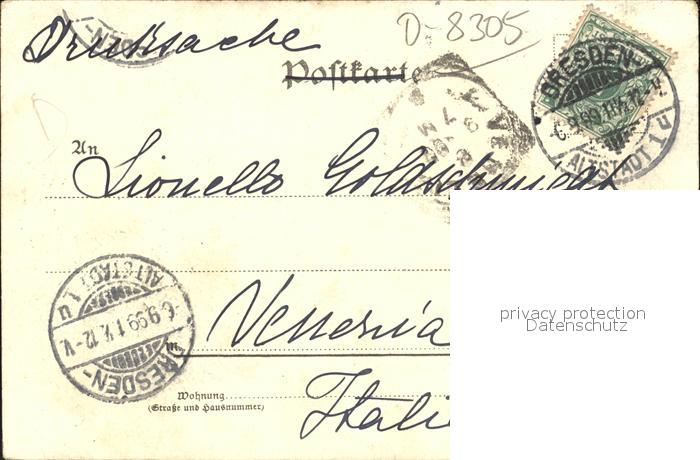 Drucksache
D-8305
Postkarte
DRESDEN-
6.9.99.11½-12.V.
ALTSTADT 1 u
An
Lionello Goldschmiedt
privacy protection
Datenschutz
ALTSTADT 1 u
6.9.99.11½-12-V.
DRESDEN-
Venezia
Wohnung
(Straße und Hausnummer)
Itali